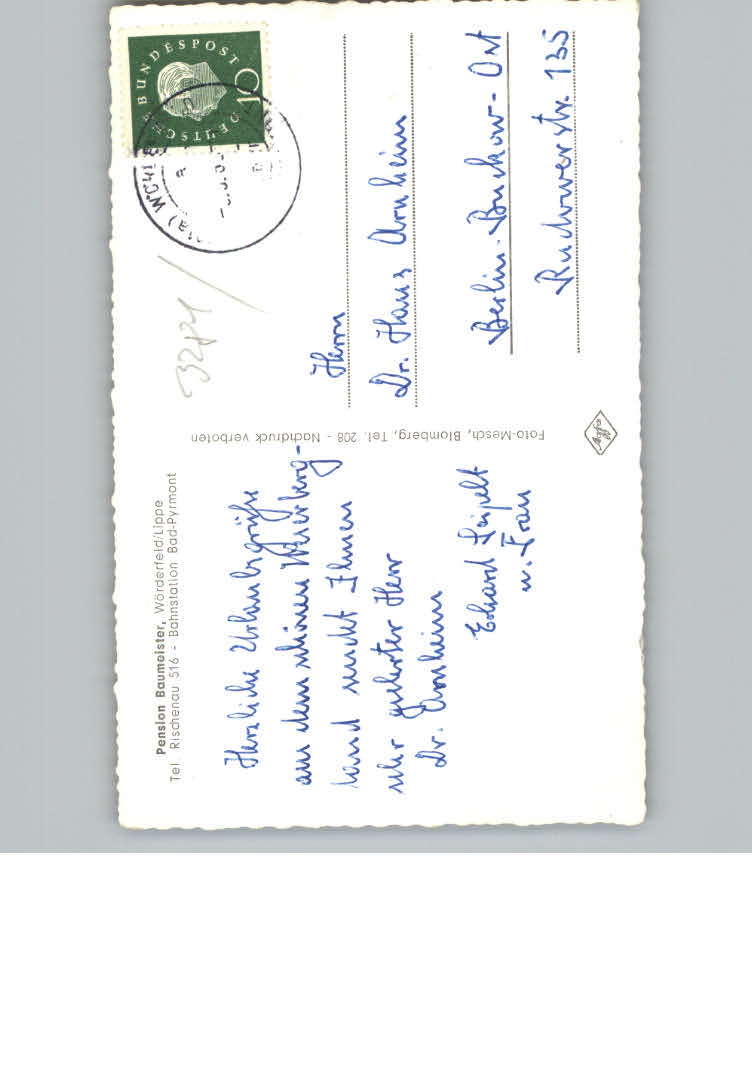 Pension Baumeister, Wörderfeld/Lippe
Tel Rischenau 516 - Bahnstation Bad-Pyrmont
Herzliche Urlaubsgrüße
aus dem schönen Weserberg-
land sendet Ihnen
sehr geehrter Herr
Dr. Arnheim
Erhard Seipelt
u. Frau
Foto-Mesch, Blomberg, Tel. 208 - Nachdruck verboten
Agfa
3284
DEUTSCHE BUNDESPOST
10
Herrn
Dr. Hans Arnheim
Berlin-Buckow-Ost
Rudowerstr. 135